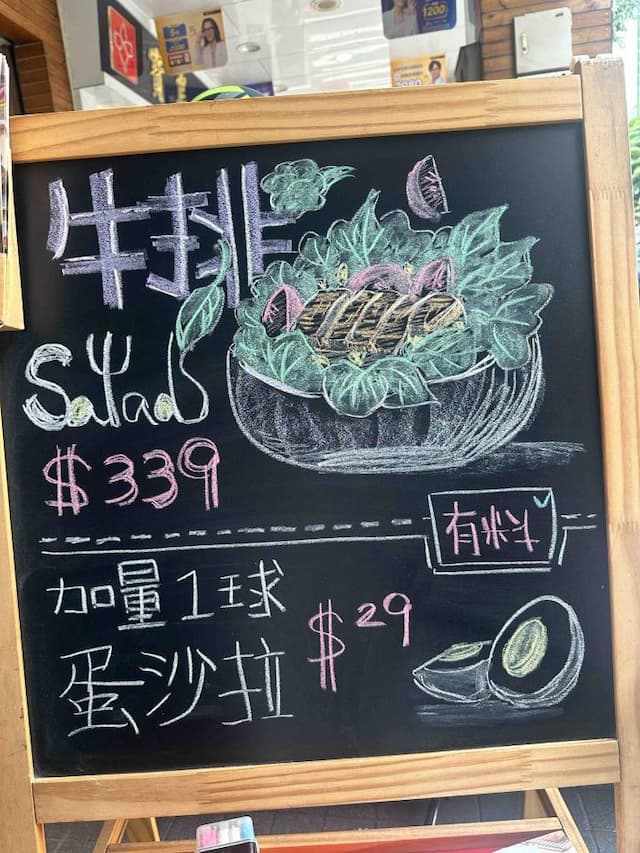 牛排
Salad
$339
有料
加量1球
蛋沙拉
$29
1200